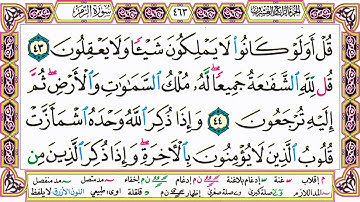 سورة الزمر ٤٦٣
قُلْ أَوَلَوْ كَانُوا۟ لَا يَمْلِكُونَ شَيْـًٔا وَلَا يَعْقِلُونَ ٤٣
قُل لِّلَّهِ ٱلشَّفَـٰعَةُ جَمِيعًا ۖ لَّهُۥ مُلْكُ ٱلسَّمَـٰوَٰتِ وَٱلْأَرْضِ ۖ ثُمَّ
إِلَيْهِ تُرْجَعُونَ ٤٤ وَإِذَا ذُكِرَ ٱللَّهُ وَحْدَهُ ٱشْمَأَزَّتْ
قُلُوبُ ٱلَّذِينَ لَا يُؤْمِنُونَ بِٱلْـَٔاخِرَةِ ۖ وَإِذَا ذُكِرَ ٱلَّذِينَ مِن